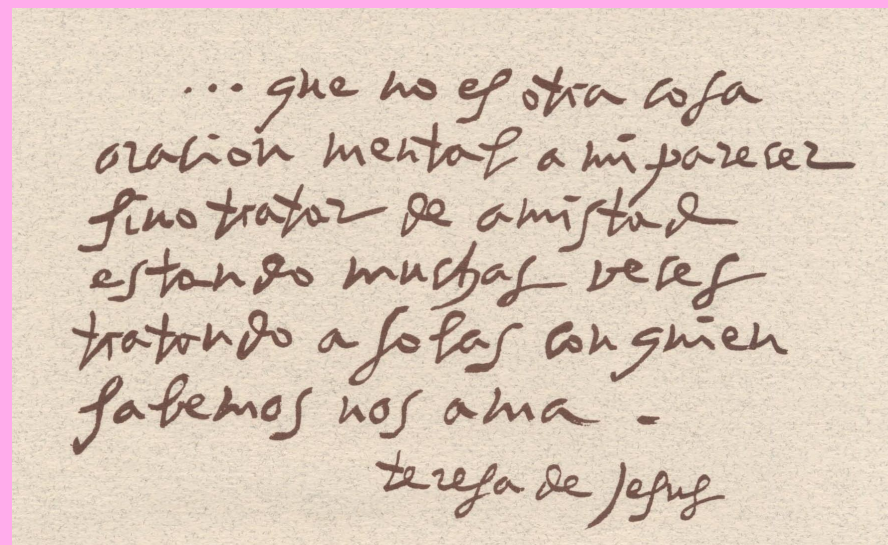 ... que no es otra cosa
oracion mental a mi parecer
sino tratar de amistad
estando muchas veces
tratando a solas con quien
sabemos nos ama -
teresa de Jesus